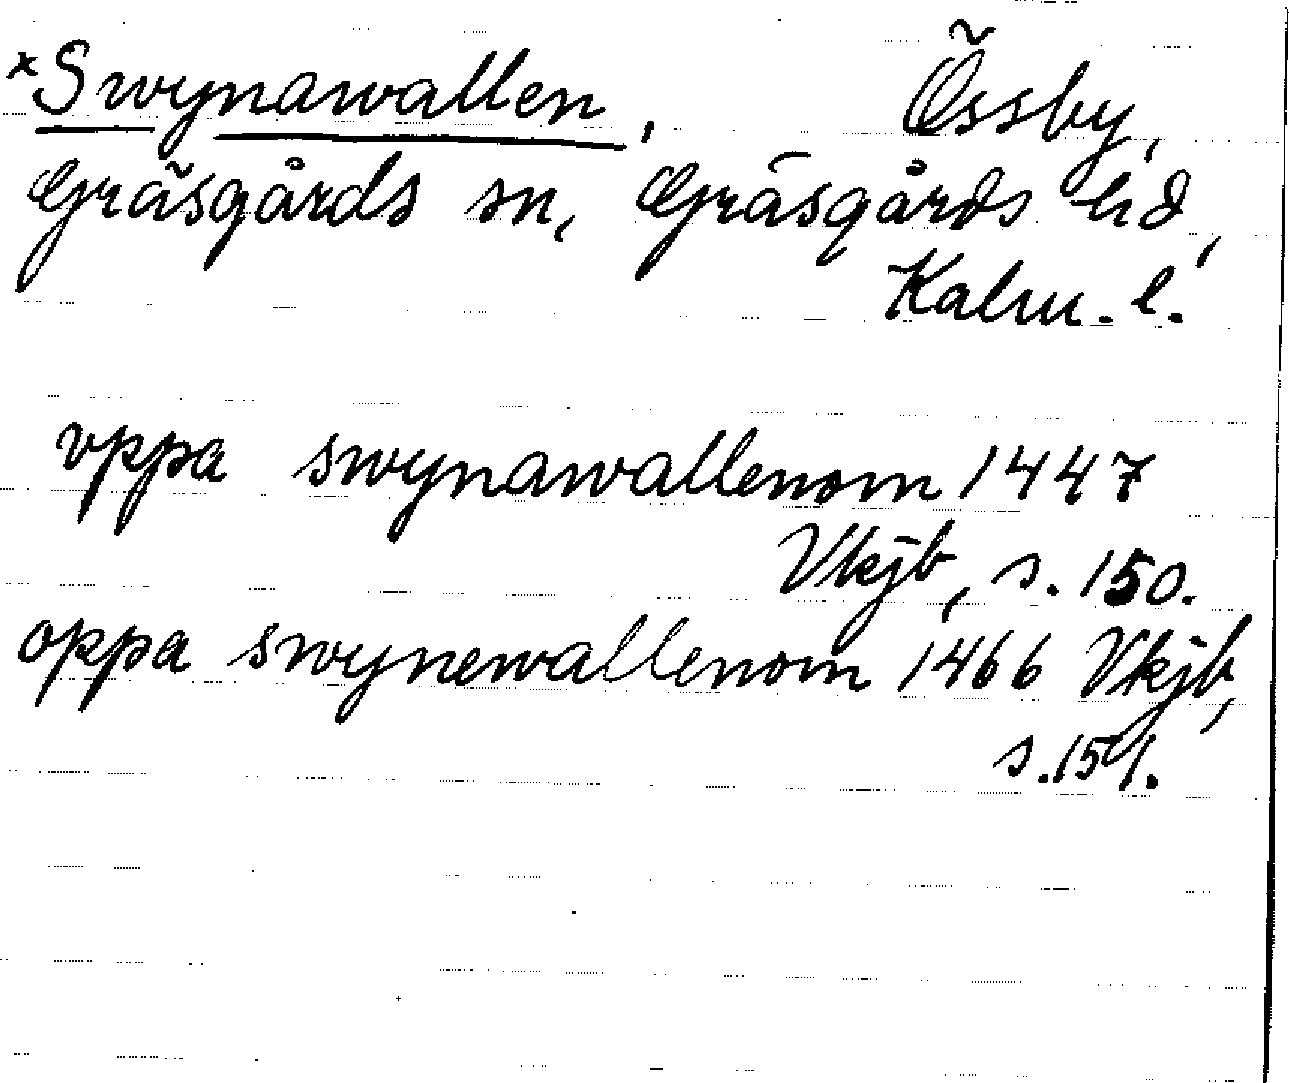 ×Swynawallen, Össby,
Gräsgårds sn, Gräsgårds hd,
Kalm. l.
vppa swynawallenom 1447
Vkjb, s. 150.
oppa swynewallenom 1466 Vkjb,
s. 151.